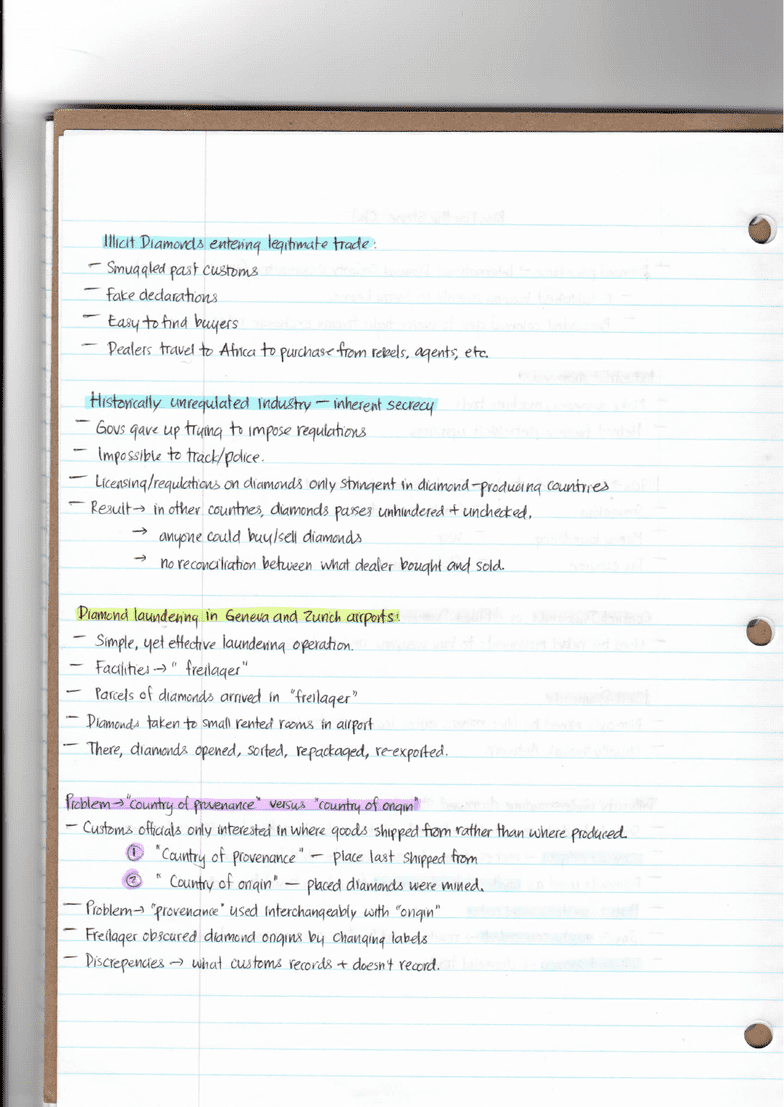 Illicit Diamonds entering legitimate trade:
- Smuggled past customs
- Fake declarations
- Easy to find buyers
- Dealers travel to Africa to purchase from rebels, agents, etc.
Historically unregulated industry - inherent secrecy
- Govs gave up trying to impose regulations
- Impossible to track/police.
- Licensing/regulations on diamonds only stringent in diamond-producing countries
- Result → in other countries, diamonds passes unhindered + unchecked.
→ anyone could buy/sell diamonds
→ no reconciliation between what dealer bought and sold.
Diamond laundering in Geneva and Zurich airports:
- Simple, yet effective laundering operation.
- Facilities → "freilager"
- Parcels of diamonds arrived in "freilager"
- Diamonds taken to small rented rooms in airport
- There, diamonds opened, sorted, repackaged, re-exported.
Problem → "country of provenance" versus "country of origin"
- Customs officials only interested in where goods shipped from rather than where produced.
① "Country of provenance" - place last shipped from
② "Country of origin" - placed diamonds were mined.
- Problem → "provenance" used interchangeably with "origin"
- Freilager obscured diamond origins by changing labels
- Discrepencies → what customs records + doesn't record.